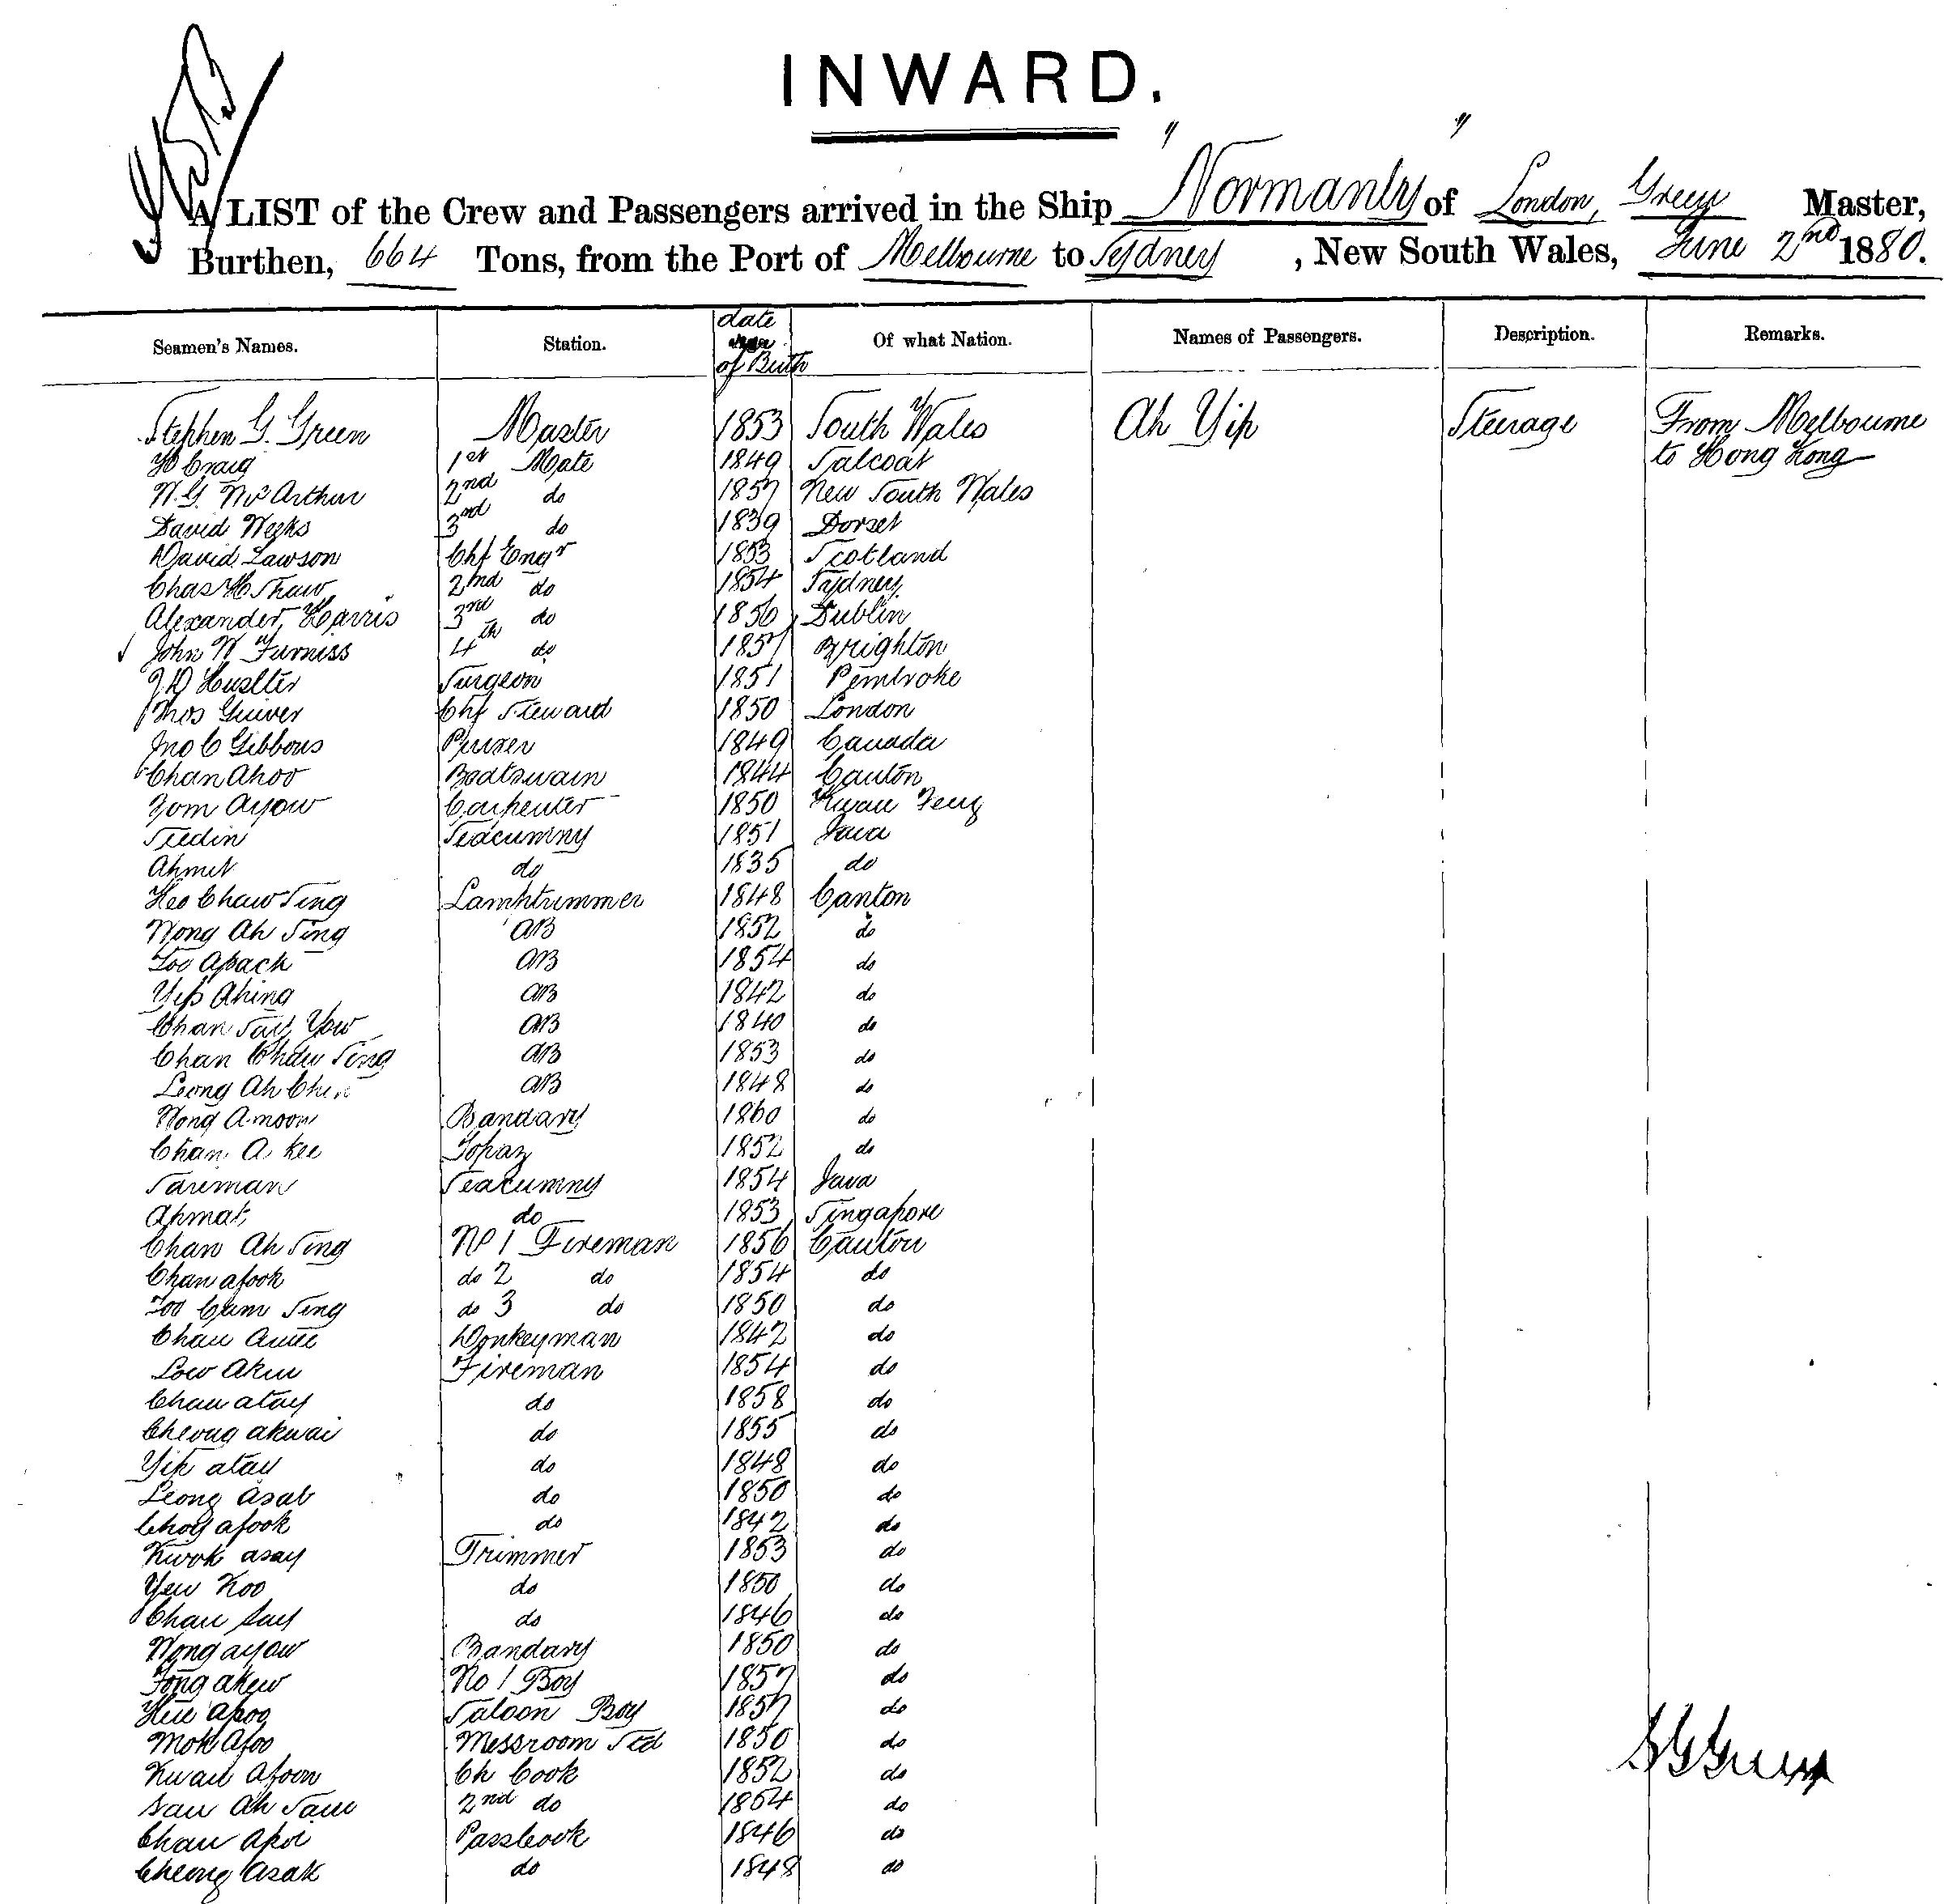 INWARD.
A LIST of the Crew and Passengers arrived in the Ship "Normanby" of London, Green Master,
Burthen, 664 Tons, from the Port of Melbourne to Sydney, New South Wales, June 2nd 1880.
Seamen's Names. Station. date of Birth Of what Nation. Names of Passengers. Description. Remarks.
Stephen G. Green Master 1853 South Wales Ah Yip Steerage From Melbourne
H Craig 1st Mate 1849 Salcoat to Hong Kong
W.G. McArthur 2nd do 1857 New South Wales
David Weeks 3rd do 1839 Dorset
David Lawson Chf Engr 1853 Scotland
Chas H Shaw 2nd do 1854 Sydney
Alexander Harris 3rd do 1856 Dublin
John W Furniss 4th do 1857 Brighton
Surgeon 1851 Pembroke
Thos Guiver Chf Steward 1850 London
Jno C Gibbons Purser 1849 Canada
Chan Ahoo Boatswain 1844 Canton
Yom Ayow Carpenter 1850 Kwan
Sedin Seacunny 1851 Java
Ahmet do 1835 do
Heo Chaw Sing Lamptrimmer 1848 Canton
Wong Ah Sing AB 1852 do
Loo Apack AB 1854 do
Yip Ahing AB 1842 do
Chan Say Yow AB 1840 do
Chan Chaw Sing AB 1853 do
Leong Ah AB 1848 do
Wong Amoon Bandary 1860 do
Chan A. Kee Topaz 1852 do
Sareman Seacunny 1854 Java
Ahmat do 1853 Singapore
Chan Ah Sing No 1 Fireman 1856 Canton
Chan afook do 2 do 1854 do
Loo Cum Sing do 3 do 1850 do
Chan Donkeyman 1842 do
Low Akin Fireman 1854 do
Chan atay do 1858 do
Cheong akwai do 1855 do
Yik atay do 1848 do
Leong asab do 1850 do
Choy afook do 1842 do
Kwok asay Trimmer 1853 do
Yew Koo do 1850 do
Chan Say do 1846 do
Wong ayow Bandary 1850 do
Tong akew No 1 Boy 1857 do
Apoo Saloon Boy 1857 do
Mok Afoo Messroom Std 1850 do
Kwan Afoon Ch Cook 1852 do
San Ah Sam 2nd do 1854 do
Chan Apoi Passcook 1846 do
Cheong Asak do 1848 do
S G Green